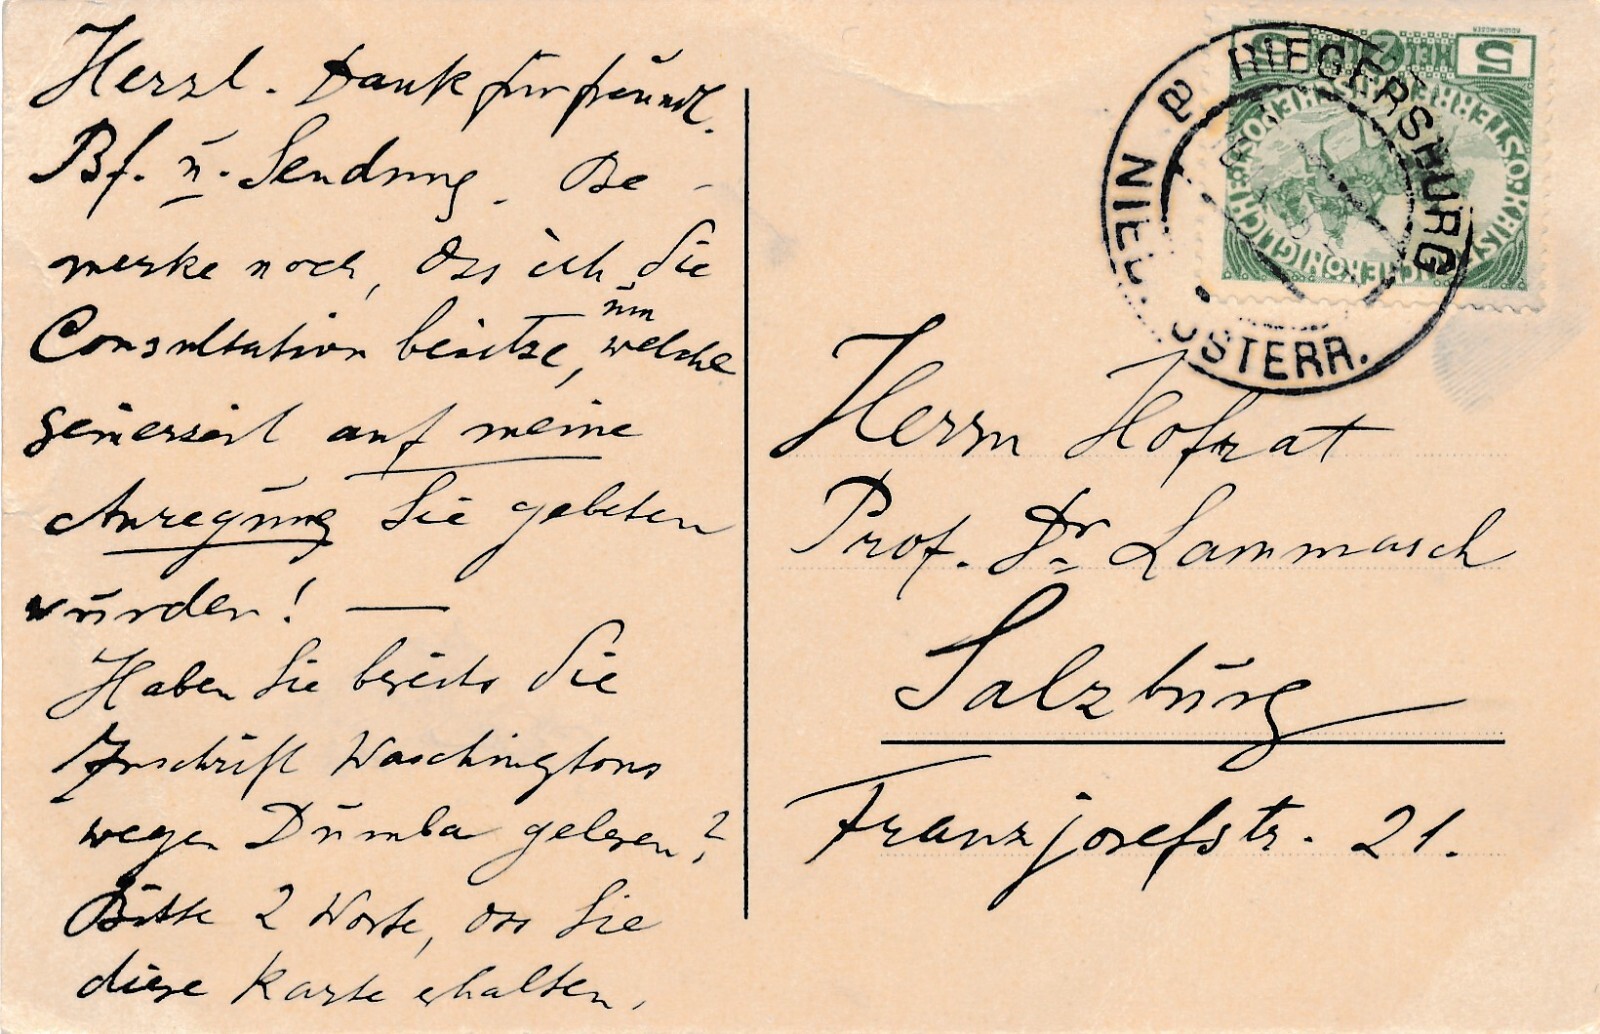 Herzl. Dank für freundl.
Bf. u. Sendung. Be-
merke noch, dss ich die
Consultation besitze, um welche
seinerzeit auf meine
Anregung Sie gebeten
wurden! —
Haben Sie bereits die
Inschrift Waschingtons
wegen Dumba gelesen?
Bitte 2 Worte, dss Sie
diese Karte erhalten.
RIEGERSBURG
NIED. ÖSTERR.
5
KAISERLICHE KÖNIGLICHE ÖSTERREICHISCHE POST
Herrn Hofrat
Prof. Dr. Lammasch
Salzburg
Franzjosefstr. 21.